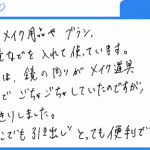 メイク用品や ブラシ、
などを 入れて 使っています。
は、鏡の周りが メイク道具
で ごちゃごちゃ していたのですが、
きりしました。
こでも 引き出し とっても便利で